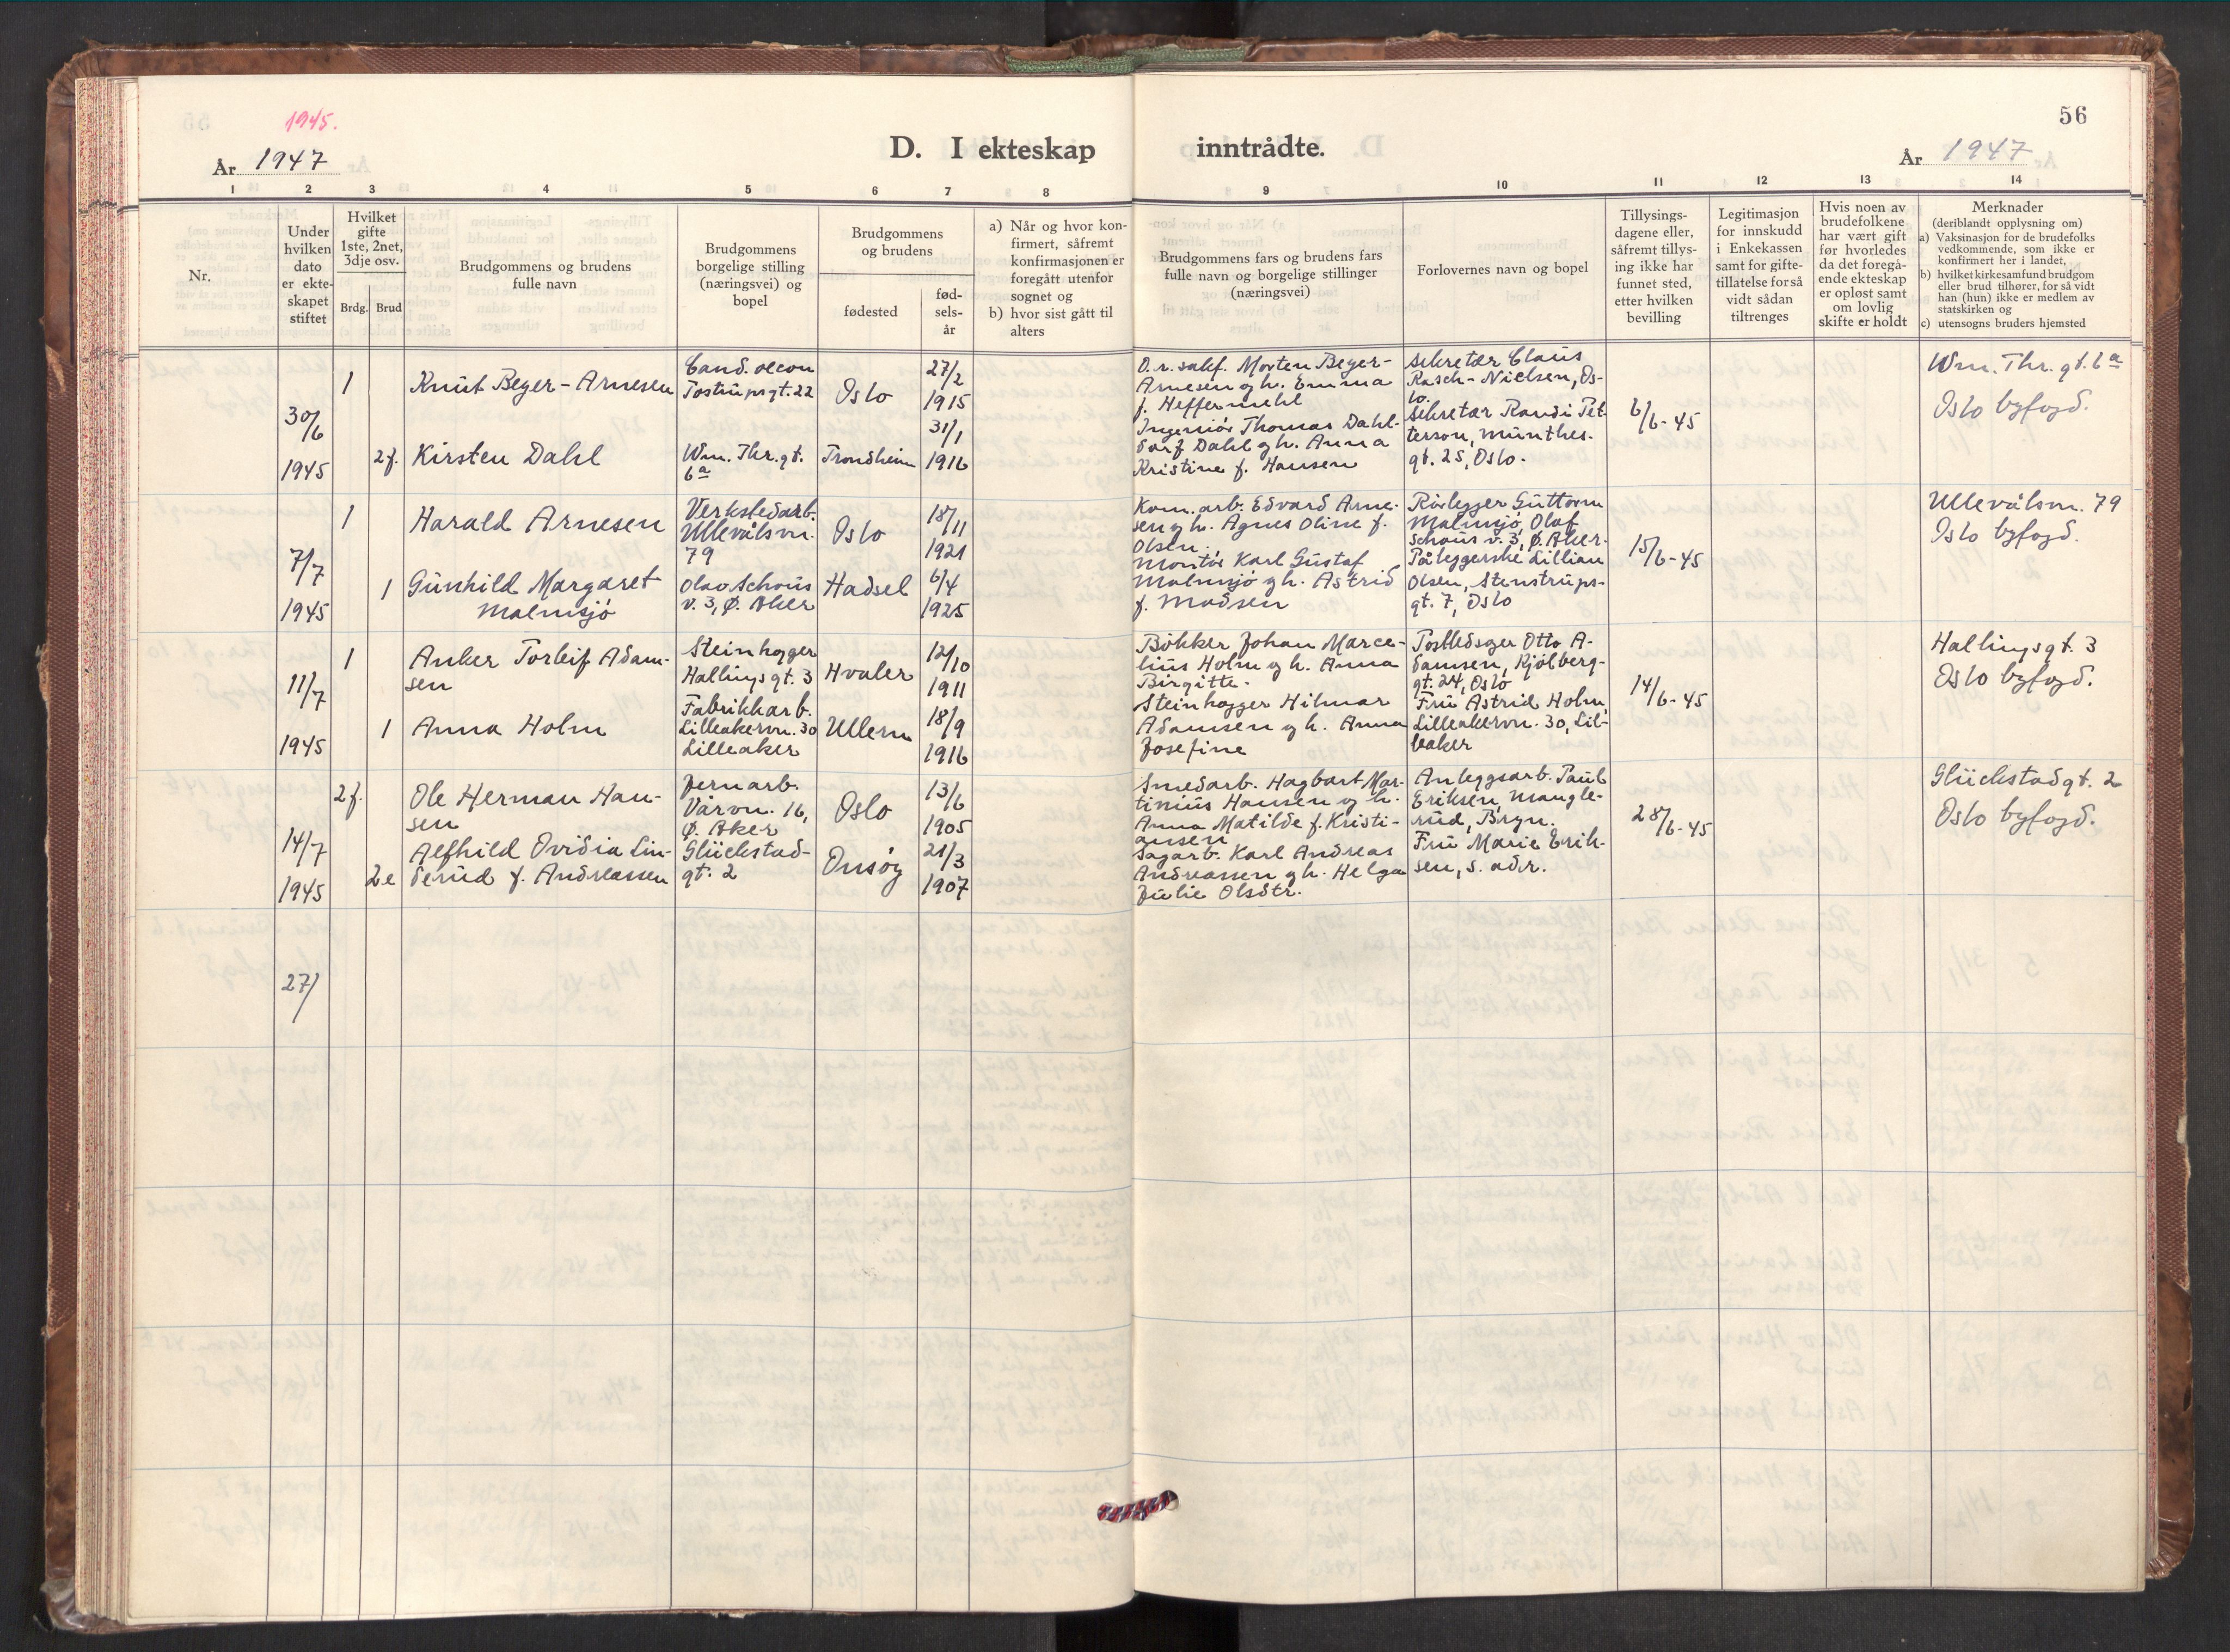 56
1945.
År 1947
D. I ekteskap inntrådte.
År 1947
1 2 3 4 5 6 7 8 9 10 11 12 13 14
Nr.
Under
hvilken
dato
er ekte-
skapet
stiftet
Hvilket
gifte
1ste, 2net,
3dje osv.
Brdg. Brud
Brudgommens og brudens
fulle navn
Brudgommens
borgelige stilling
(næringsvei) og
bopel
Brudgommens
og brudens
fødested
fød-
sels-
år
a) Når og hvor kon-
firmert, såfremt
konfirmasjonen er
foregått utenfor
sognet og
b) hvor sist gått til
alters
Brudgommens fars og brudens fars
fulle navn og borgelige stillinger
(næringsvei)
Forlovernes navn og bopel
Tillysings-
dagene eller,
såfremt tillys-
ing ikke har
funnet sted,
etter hvilken
bevilling
Legitimasjon
for innskudd
i Enkekassen
samt for gifte-
tillatelse for så
vidt sådan
tiltrenges
Hvis noen av
brudefolkene
har vært gift
før hvorledes
da det foregå-
ende ekteskap
er opløst samt
om lovlig
skifte er holdt
Merknader
(deriblandt opplysning om)
a) Vaksinasjon for de brudefolks
vedkommende, som ikke er
konfirmert her i landet,
b) hvilket kirkesamfund brudgom
eller brud tilhører, for så vidt
han (hun) ikke er medlem av
statskirken og
c) utensogns bruders hjemsted
30/6
1945
1
Knut Beyer-Arnesen
Cand. oecon
Tostrupsgt. 22
Oslo
27/2
1915
2 f.
Kirsten Dahl
Wm. Thr. gt.
6a
Trondheim
31/1
1916
O.r.sakf. Morten Beyer-
Arnesen og h. Emma
f. Heffermehl
Ingeniør Thomas Dahl-
dorf Dahl og h. Anna
Kristine f. Hansen
Sekretær Claus
Rasch-Nielsen, Os-
lo.
Sekretær Randi Pet-
terson, Munthes-
gt. 25, Oslo.
6/6-45
Wm. Thr. gt. 6a
Oslo byfogd.
7/7
1945
1
Harald Arnesen
Verkstedarb.
Ullevålsvn.
79
Oslo
18/11
1921
1
Gunhild Margaret
Malmsjø
Olav Schous
v. 3, Ø. Aker
Hadsel
6/4
1925
Kom.arb. Edvard Arne-
sen og h. Agnes Oline f.
Olsen.
Montør Karl Gustaf
Malmsjø og h. Astrid
f. Madsen
Rørlegger Guttorm
Malmsjø, Olaf
Schous v. 3, Ø. Aker.
Påleggerske Lillian
Olsen, Stenstrups-
gt. 7, Oslo
15/6-45
Ullevålsvn. 79
Oslo byfogd.
11/7
1945
1
Anker Torleif Adam-
sen
Steinhogger
Hallingsgt. 3
Hvaler
12/10
1911
1
Anna Holm
Fabrikkarb.
Lilleakervn. 30
Lilleaker
Ullern
18/9
1916
Bøkker Johan Marce-
lius Holm og h. Anna
Birgitte.
Steinhogger Hilmar
Adamsen og h. Anna
Josefine
Postbedsger Otto A-
damsen, Kjølberg-
gt. 24, Oslo
Fru Astrid Holm,
Lilleakervn. 30, Lil-
leaker
14/6-45
Hallingsgt. 3
Oslo byfogd.
14/7
1945
2 f.
Ole Herman Han-
sen
Jernarb.
Vårvn. 16,
Ø. Aker
Oslo
13/6
1905
2 e
Alfhild Ovidia Lin-
derud f. Andreassen
Glückstad-
gt. 2
Onsøy
21/3
1907
Smedarb. Hagbart Mar-
tinius Hansen og h.
Anna Matilde f. Kristi-
ansen
Sagarb. Karl Andreas
Andreassen og h. Helga
Julie Olsdtr.
Anleggsarb. Paul
Eriksen, Mangle-
rud, Bryn.
Fru Marie Erik-
sen, s. adr.
28/6-45
Glückstadgt. 2
Oslo byfogd.
27/